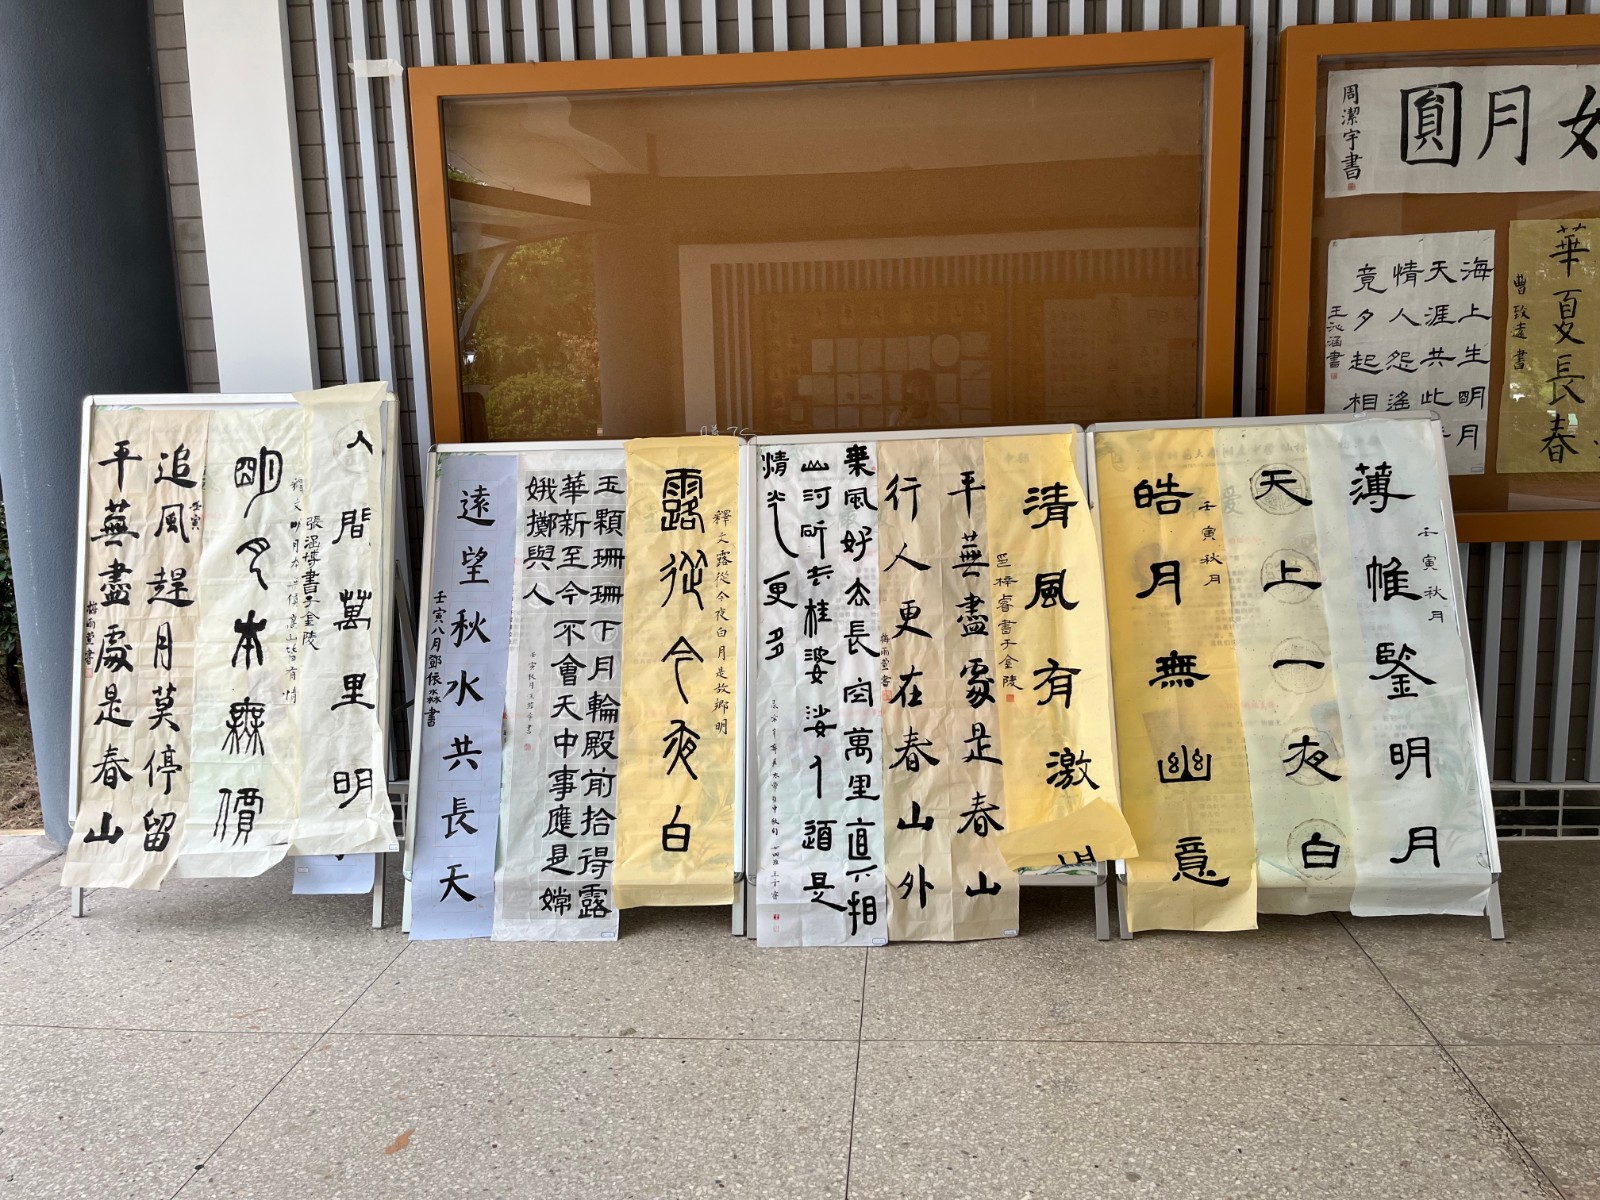 周潔宇書
圓月
海上生明月
天涯共此
情人怨遙
竟夕起相
王沁涵書
華夏長春
曹致遠書
薄帷鑒明月
壬寅秋月
天上一夜白
壬寅秋月
皓月無幽意
清風有激
梓睿書于金陵
平蕪盡處是春山
行人更在春山外
梅雨萱書
乘風好去長空萬里直下相
山河斫去桂婆娑人道是
清光更多
釋文露從今夜白月是故鄉明
露從今夜白
玉顆珊珊下月輪殿前拾得露
華新至今不會天中事應是嫦
娥擲與人
遠望秋水共長天
壬寅八月鄧依淼書
人間萬里明
張涵博書于金陵
釋文明月本無價高山皆有情
明月本無價
壬寅
追風趕月莫停留
平蕪盡處是春山
梅雨萱書